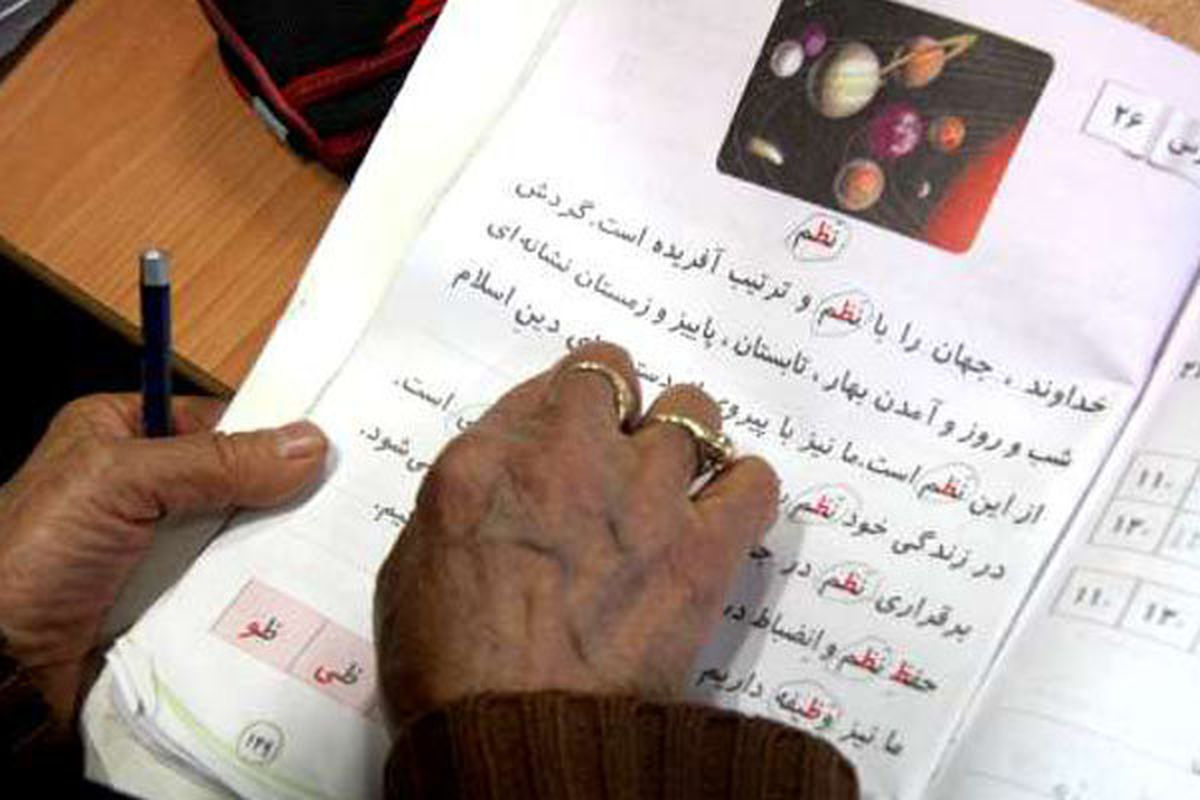 ۲۶
نظم
خداوند، جهان را با نظم و ترتیب آفریده است. گردش
شب و روز و آمدن بهار، تابستان، پاییز و زمستان نشانه‌ای
از این نظم است. ما نیز با پیروی دین اسلام
در زندگی خود نظم است.
برقراری نظم در می‌شود.
حفظ نظم و انضباط در
ما نیز وظیفه داریم
ظی ظو
۱۴۹
۱۱۰
۱۳۰
۱۱۰ ۱۳۰